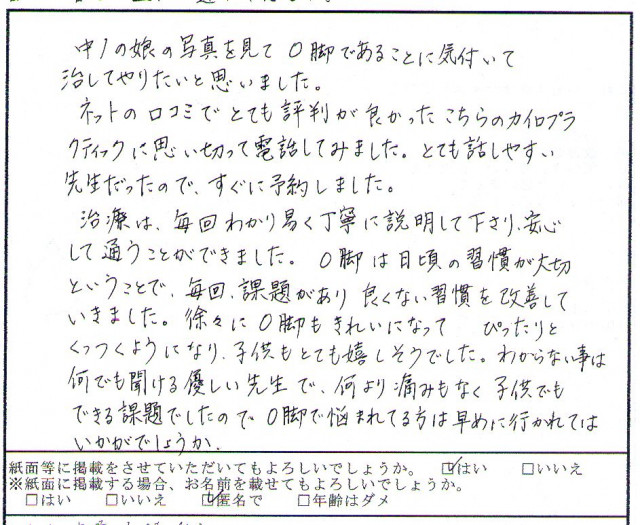 中1の娘の写真を見て O脚であることに気付いて
治してやりたいと思いました。
ネットの口コミでとても評判が良かったこちらのカイロプラ
クティックに思い切って電話してみました。とても話しやすい
先生だったので、すぐに予約しました。
治療は、毎回わかり易く丁寧に説明して下さり、安心
して通うことができました。O脚は日頃の習慣が大切
ということで、毎回、課題があり 良くない習慣を改善して
いきました。徐々にO脚もきれいになって ぴったりと
くっつくようになり、子供もとても嬉しそうでした。わからない事は
何でも聞ける優しい先生で、何より痛みもなく子供でも
できる課題でしたので O脚で悩まれてる方は早めに行かれては
いかがでしょうか。
紙面等に掲載をさせていただいてもよろしいでしょうか。 ☑はい □いいえ
※紙面に掲載する場合、お名前を載せてもよろしいでしょうか。
□はい □いいえ ☑匿名で □年齢はダメ